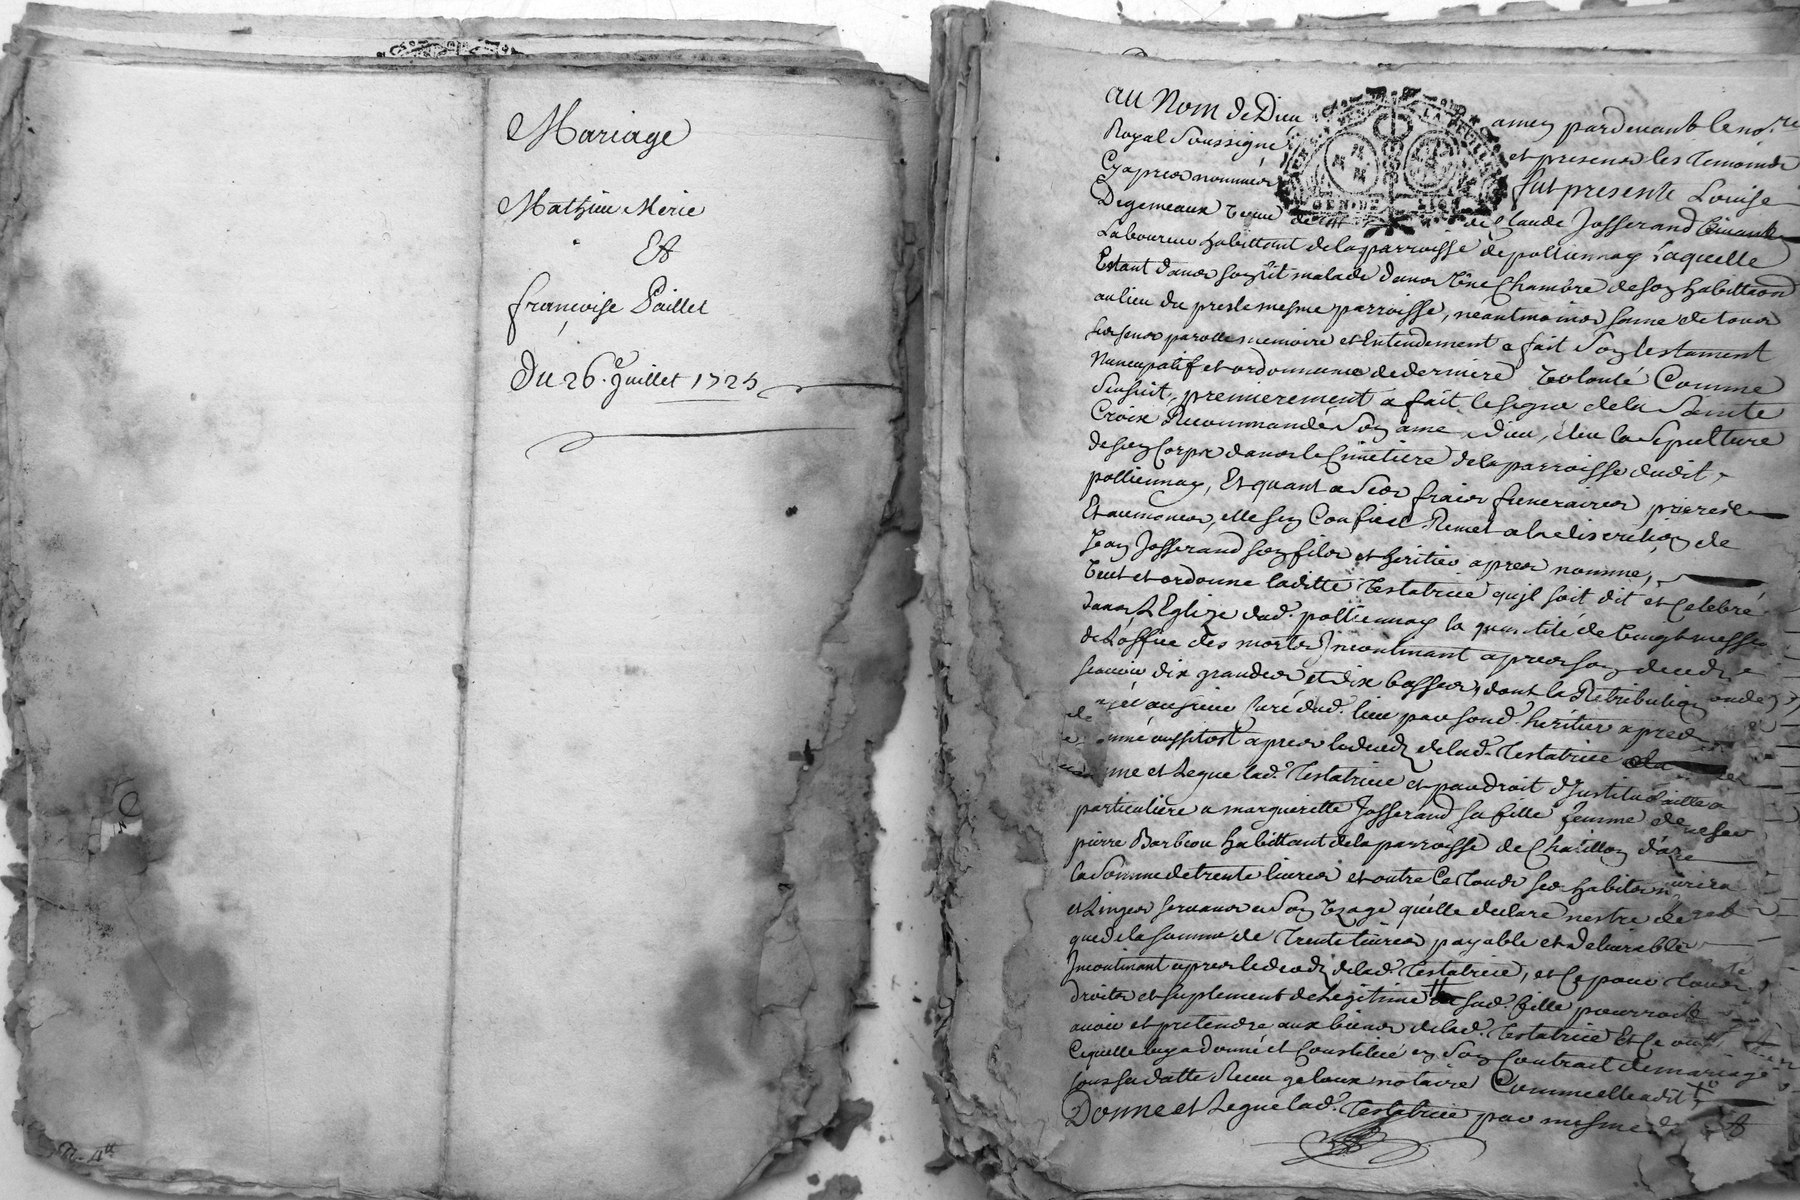 Mariage
Mathieu Merie
Et
françoise Paillet
Du 26.e Juillet 1725
Au Nom de Dieu amen pardevant le no.re
Royal Soussigné et presences les temoins
Cy apres nommés fut presente Louise
Degemeaux veuve de Claude Josserand vivant
Laboureur habittant de la parroisse de pollionnay Laquelle
Estant dans son lit malade dans Une Chambre de son habittaon
au lieu du presle mesme parroisse, neantmoins saine de tous
ses sens parolle memoire et Entendement a fait Son testament
Nuncupatif et ordonnance de derniere volonté Comme
Sensuit, premierement a fait le signe de la Sainte
Croix Recommandé Son ame a Dieu, élu la Sepulture
de son Corps dans le Cimetiere de la parroisse dudit
pollionnay, Et quant a Ses fraix funeraires prieres
Et aumones, elle sen Confie et Remet a la discretion de
Jean Josserand son fils et heritier apres nomme,
Veut et ordonne laditte Testatrice quil soit dit et Celebré
dans L'Eglize dud. pollionnay la quantité de vingt messes
de Loffice des morts Incontinant apres son deceds
scavoir dix grandes et dix basses, dont la Retribution
au sieur Curé dud. lieu par sond. heritier apres
aussitost apres le deceds de lad. Testatrice
et Legue lad.e Testatrice et par droit d'Institution
particuliere a marguerite Josserand sa fille femme de
pierre Barbiou habittant de la parroisse de Chatillon d'az
la Somme de trente livres et outre Ce tous ses habits
et Linges servants a Son Uzage quelle declare nestre de
que de la somme de Trente livres payable et delivrable
Incontinant apres le deceds de lad. Testatrice, et Ce pour tous
droits et suplement de Legitime que sad. fille pourroit
avoir et pretendre aux biens de lad. Testatrice Et Ce outre
Cequelle luy a donné et Constitué en Son Contrat de mariage
sous sa datte Receu notaire Comme elle a dit
Donne et Legue lad. Testatrice par mesme